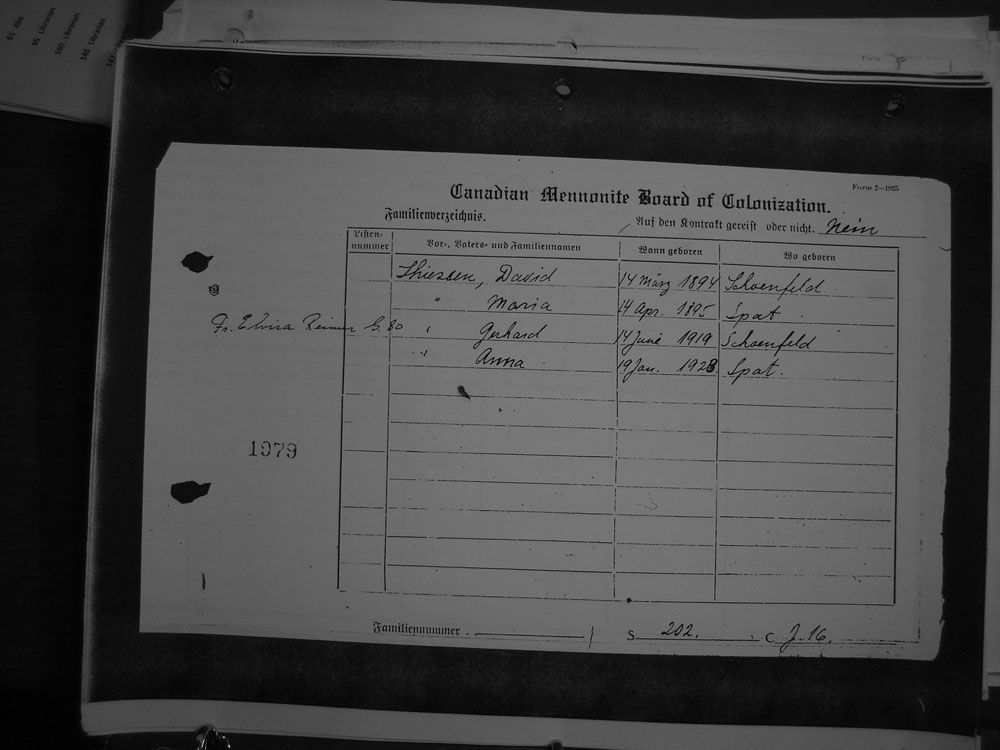 61 Abe
85 Librarian
100 Librarian
146 Librarian
Form 2—1925
Canadian Mennonite Board of Colonization.
Familienverzeichnis.
Auf den Kontrakt gereist oder nicht. Nein
Listen-nummer
Vor-, Vaters- und Familiennamen
Wann geboren
Wo geboren
Thiessen, David 14 März 1894 Schoenfeld
" Maria 14 Apr. 1895 Spat
Fr. Elvira Reimer G. 80 " Gerhard 14 June 1919 Schoenfeld
" Anna 19 Jan. 1923 Spat.
1979
Familiennummer. S 202. C J.16.